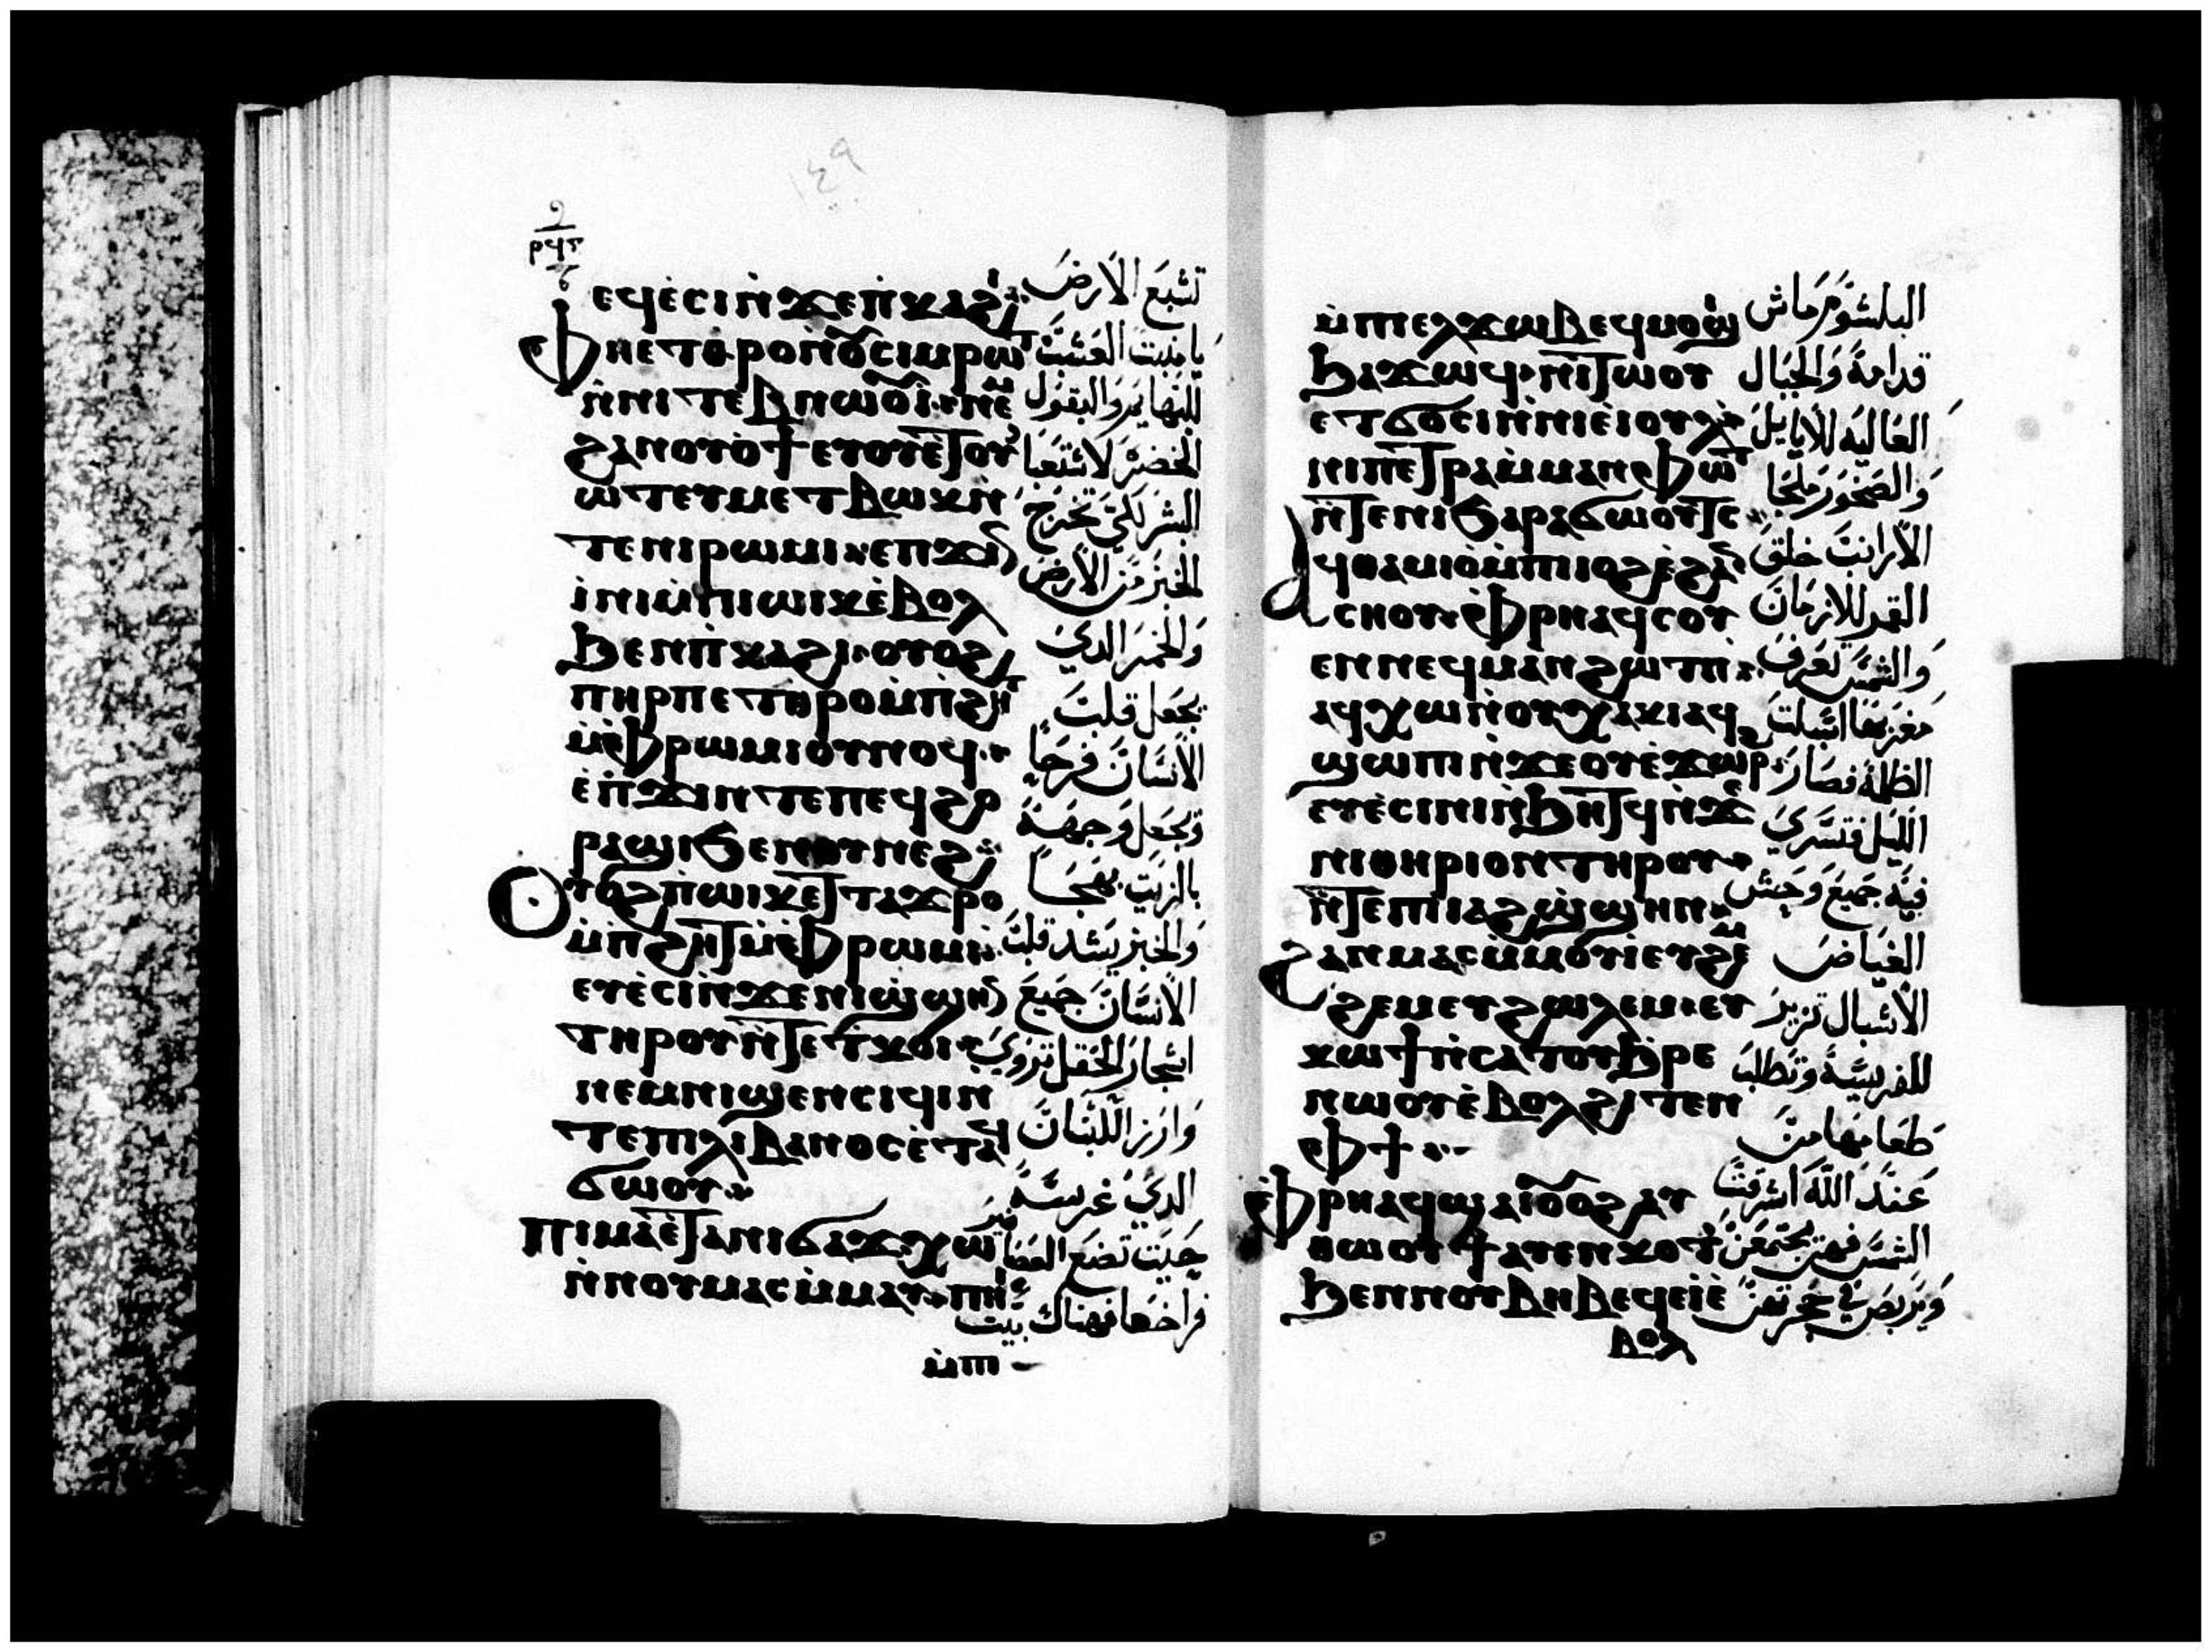 ⲣϥⲅ
١٤٩
ⲉϥⲉ̀ⲥⲓⲛ̀ϫⲉⲡ̀ⲕⲁϩⲓ
ⲫⲏⲉⲧⲑⲣⲟⲛ̀ⲟⲩⲥⲓⲙⲣⲱⲧ
ⲛ̀ⲛⲓⲧⲉⲃⲛⲱⲟⲩⲓ ⲛⲉⲙ
ϩⲁⲛⲟⲩⲟ̀ϯⲉⲩⲟⲩⲉ̀ⲧⲟⲩⲱ̀ⲧ
ⲱ̀ⲧⲉⲩⲙⲉⲧⲃⲱⲕⲛ̀
ⲧⲉⲛⲓⲣⲱⲙⲓ ⲉⲡϫⲓⲛ
ⲓ̀ⲛⲓⲙ̀ⲡⲓⲱⲓⲕⲉ̀ⲃⲟⲗ
ϧⲉⲛⲡ̀ⲕⲁϩⲓ ⲟⲩⲟϩ
ⲡⲏⲣⲡⲉⲧⲑⲣⲟⲙ̀ⲡ̀ϩⲏⲧ
ⲙ̀ⲫⲣⲱⲙⲓⲟⲩⲛⲟϥ
ⲉ̀ⲡ̀ϫⲓⲛⲧⲉⲡⲉϥϩⲟ
ⲣⲁϣⲓϧⲉⲛⲟⲩⲛⲉϩ
ⲟⲩⲟϩⲡ̀ⲱⲓⲕⲉⲧⲧⲁϫⲣⲟ
ⲙ̀ⲡ̀ϩⲏⲧⲙ̀ⲫⲣⲱⲙⲓ
ⲉⲩⲉ̀ⲥⲓⲛ̀ϫⲉⲛⲓϣϣⲏⲛ
ⲧⲏⲣⲟⲩⲛ̀ⲧⲉⲧⲕⲟⲓ
ⲛⲉⲙⲛⲓϣⲉⲛⲥⲓϥⲓⲛ
ⲧⲉⲡⲓⲗⲓⲃⲁⲛⲟⲥⲉ̀ⲧⲁϥ
ϭⲱⲟⲩ
ⲡⲓⲙⲁⲉ̀ⲧⲁⲛⲓϭⲁϫϫⲱ
ⲛ̀ⲛⲟⲩⲙⲁⲥⲙ̀ⲙⲁⲩ ⲡⲏⲓ
ⲙ̀ⲡⲓ
تشبع الارض
يا منبت العشب
للبهايم والبقول
الخضر لاستعباد
البشر لكي تخرج
الخبز من الارض
والخمر الدي
يجعل قلب
الانسان فرحا
وتجعل وجهه
بالزيت بهجا
والخبز يشدد قلب
الانسان جميع
اشجار الحقل تروي
وارز اللبنان
الدي غرسته
حيت تضع العصافير
فراخها فهناك بيت
ⲙ̀ⲡⲉⲗϫⲱⲃⲉϥⲙⲟϣⲓ
ϧⲁϫⲱϥ ⲛⲓⲧⲱⲟⲩ
ⲉⲧϭⲟⲥⲓⲛ̀ⲛⲓⲉⲓⲟⲩⲗ
ⲛⲓⲡⲉⲧⲣⲁⲙ̀ⲙⲁⲛⲫⲱⲧ
ⲛ̀ⲧⲉⲛⲓⲥⲁⲣⲁϭⲱⲟⲩⲧⲥ
ⲁϥⲑⲁⲙⲓⲟ̀ⲙ̀ⲡⲓⲟϩⲉ̀ϩⲁⲛ
ⲥⲛⲟⲩ ⲫⲣⲏⲁϥⲥⲟⲩ
ⲉⲛⲛⲉϥⲙⲁⲛϩⲱⲧⲡ
ⲁϥⲭⲱⲛ̀ⲟⲩⲭⲁⲕⲓⲁϥ
ϣⲱⲡⲓⲛ̀ϫⲉⲟⲩⲉ̀ϫⲱⲣϩ
ⲉⲩⲉ̀ⲥⲓⲛⲓⲛ̀ϧⲏⲧϥⲛ̀ϫⲉ
ⲛⲓⲑⲏⲣⲓⲟⲛⲧⲏⲣⲟⲩ
ⲛ̀ⲧⲉⲡⲓⲁϩϣϣⲏⲛ
ϩⲁⲛⲙⲁⲥⲙ̀ⲙⲟⲩⲓⲉⲩϩⲉⲙ
ϩⲉⲙⲉⲩϩⲱⲗⲉⲙ ⲉⲩ
ⲕⲱϯⲛ̀ⲥⲁⲧⲟⲩϧⲣⲉ
ⲛⲱⲟⲩⲉ̀ⲃⲟⲗϩⲓⲧⲉⲛ
ⲫϯ
ⲫⲣⲏⲁϥϣⲁⲓⲟⲩⲟϩⲁⲩ
ⲑⲱⲟⲩϯⲁⲩⲉⲛⲕⲟⲧ
ϧⲉⲛⲛⲟⲩⲃⲏⲃⲉϥⲉⲓⲉ̀
ⲃⲟⲗ
البلشوم ماش
قدامه والجبال
العاليه للايايل
والصخور ملجا
الارانب خلق
القمر للازمان
والشمس تعرف
مغربها اشبلت
الظلمة فصار
الليل فتسري
فيه جميع وحش
الغياض
الاشبال تزير
للفريسة وتطلب
طعامها من
عند الله اشرقت
الشمس فهن يجتمعن
ويربص في جحرتهن